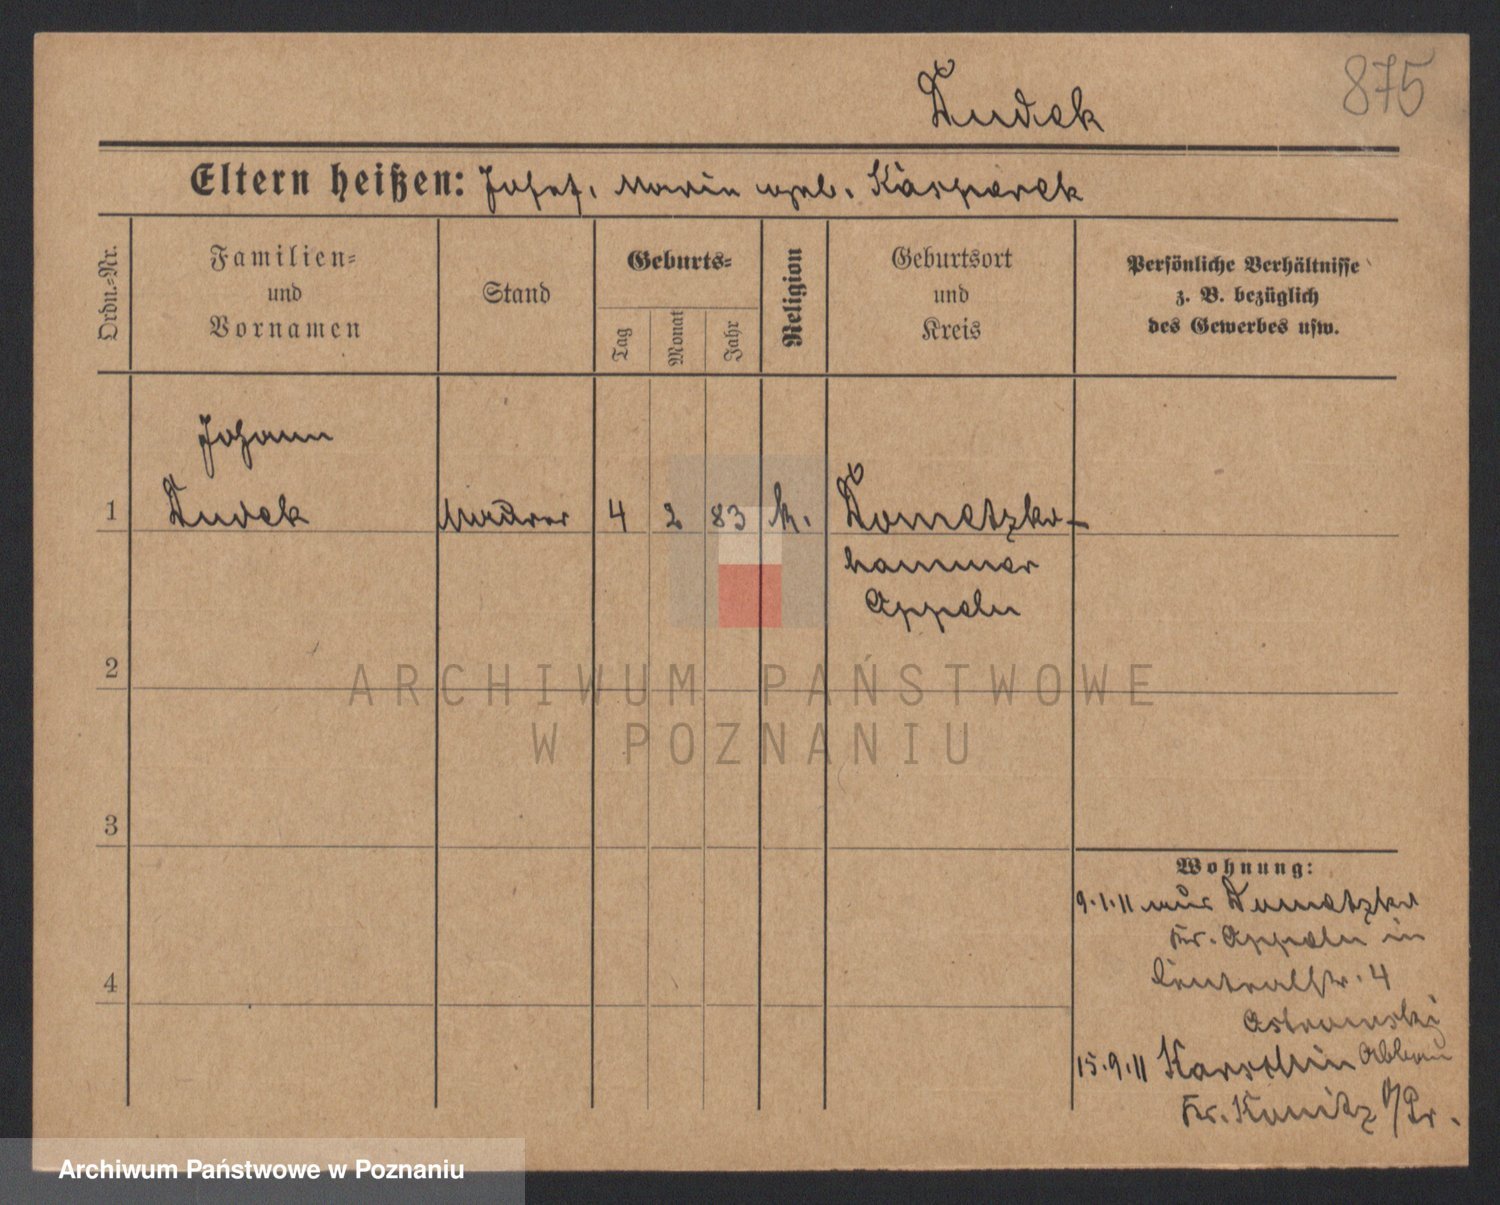 875
Dudek
Eltern heißen: Josef, Marie geb. Kasparek
Ordn.-Nr.
Familien-
und
Vornamen
Stand
Geburts-
Tag
Monat
Jahr
Religion
Geburtsort
und
Kreis
Persönliche Verhältnisse
z. B. bezüglich
des Gewerbes usw.
Johann
1 Dudek Maurer 4 2 83 k. Dometzko-
hammer
Oppeln
2
ARCHIWUM PAŃSTWOWE
W POZNANIU
3
Wohnung:
9.1.11 aus Dometzko
Kr. Oppeln in
Centralstr. 4
Ostrowski
4
15.9.11 Karschin Abbau
Kr. Konitz /Pr.
Archiwum Państwowe w Poznaniu